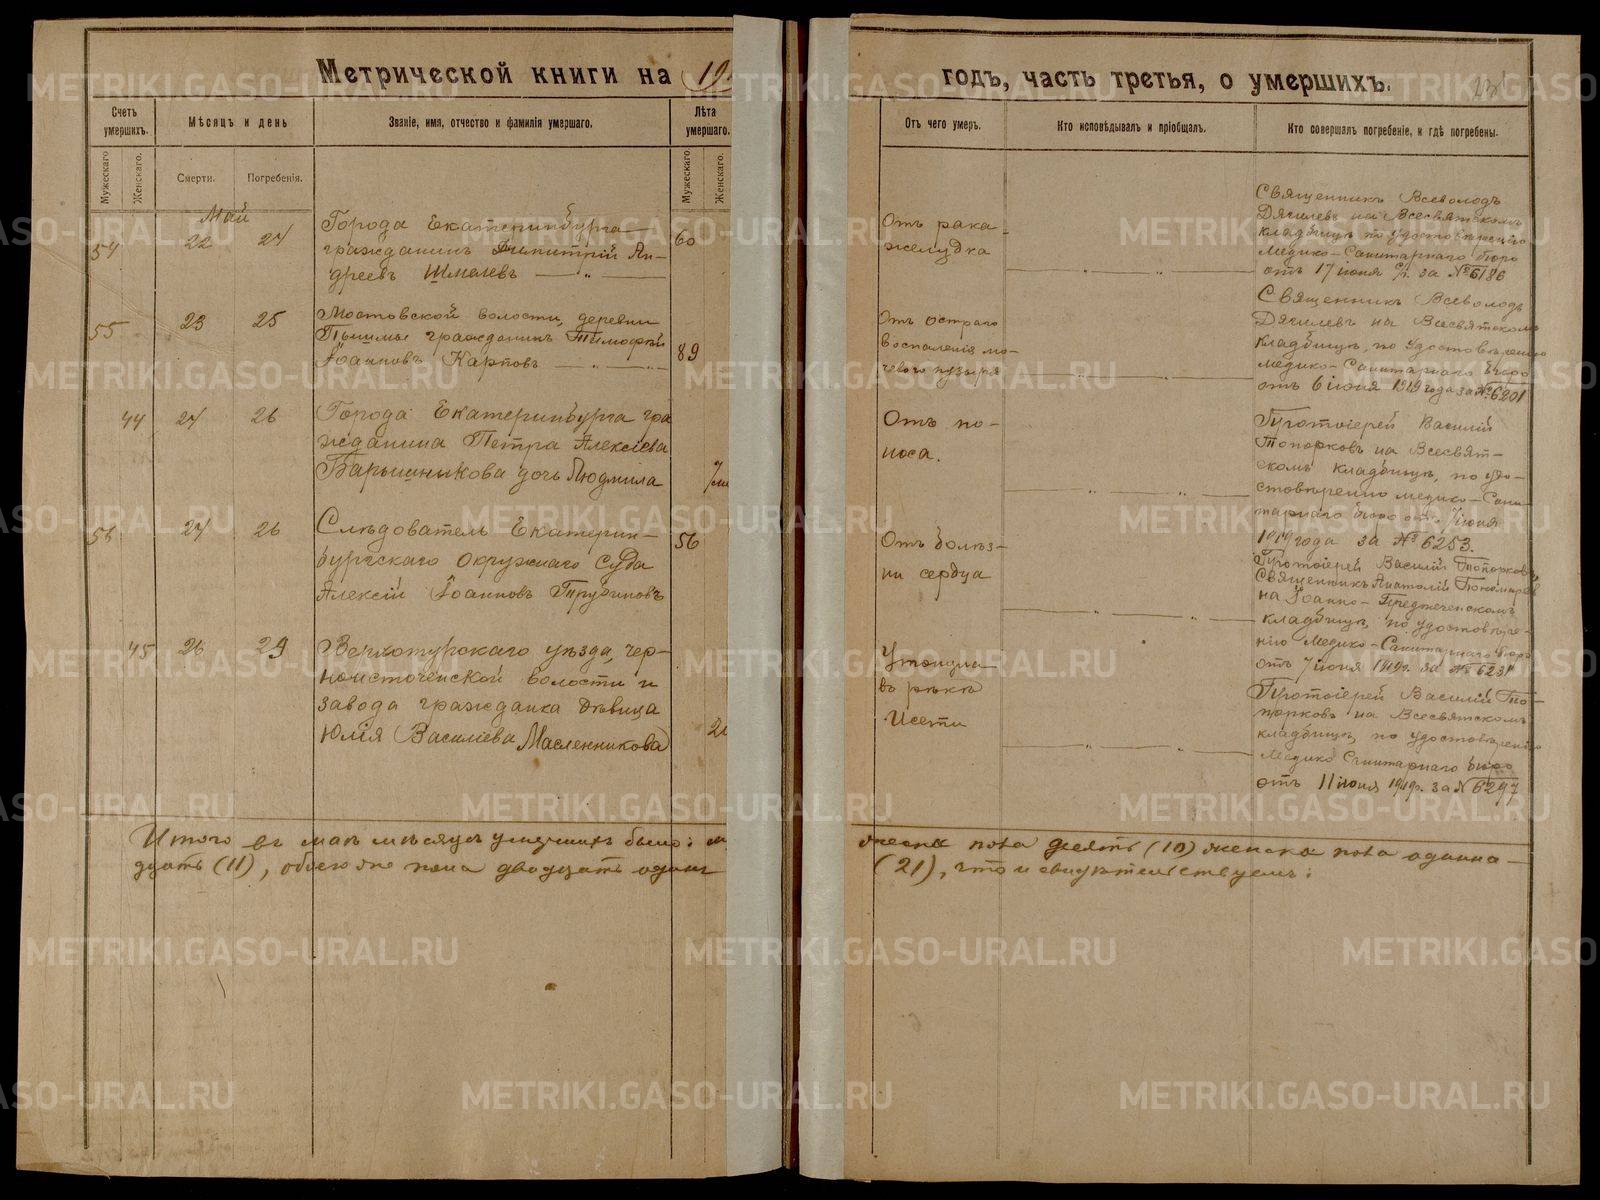 Метрической книги на 19
годъ, часть третья, о умершихъ.
Счетъ умершихъ.
Мѣсяцъ и день
Званіе, имя, отчество и фамилія умершаго.
Лѣта умершаго.
Мужескаго
Женскаго.
Смерти.
Погребенія.
Мужескаго
Женскаго.
Отъ чего умеръ.
Кто исповѣдывалъ и пріобщалъ.
Кто совершалъ погребеніе, и гдѣ погребены.
Май
54 22 24
Города Екатеринбурга
гражданинъ Димитрій Ан-
дреевъ Шмелевъ
60
Отъ рака
желудка
Священникъ Всеволодъ
на Всесвятскомъ
кладбищѣ по удостовѣренію
Медико-Санитарнаго бюро
отъ 17 іюня с/г. за № 6186
55 23 25
Мостовской волости, деревни
гражданинъ Тимофей
Іоанновъ Карповъ
89
Отъ остраго
воспаленія мо-
чевого пузыря
Священникъ Всеволодъ
на Всесвятскомъ
кладбищѣ, по удостовѣренію
медико-Санитарнаго бюро
отъ 6 іюня 1919 года за № 6201
44 24 26
Города Екатеринбурга гра
жданина Петра Алексіева
Барышникова дочь Людмила
7 м
Отъ по-
носа.
Протоіерей Василій
Топорковъ на Всесвят-
скомъ кладбищѣ, по удо-
стовѣренію медико-Сани-
тарнаго бюро отъ 7 іюня
1919 года за № 6253.
56 24 26
Слѣдователь Екатерин-
бургскаго Окружнаго Суда
Алексій Іоанновъ
56
Отъ болѣз-
ни сердца
Протоіерей Василій Топорковъ,
Священникъ Анатолій Пономаревъ
на Іоанно-Предтеченскомъ
кладбищѣ, по удостовѣре-
нію Медико-Санитарнаго бюро
отъ 7 іюня 1919г. за № 6231
45 26 29
Верхотурскаго уѣзда, чер-
ноисточенской волости и
завода гражданка дѣвица
Юлія Василіева Масленникова
2
Утонула
въ рѣкѣ
Исети
Протоіерей Василій То-
порковъ на Всесвятскомъ
кладбищѣ, по удостовѣренію
Медико Санитарнаго бюро
отъ 11 іюня 1919г. за № 6297
Итого въ маѣ мѣсяцѣ умершихъ было: м
жеска пола десять (10) женска пола одинна-
дцать (11), обоего же пола двадцать одинъ
(21), что и свидѣтельствуемъ:
METRIKI.GASO-URAL.RU